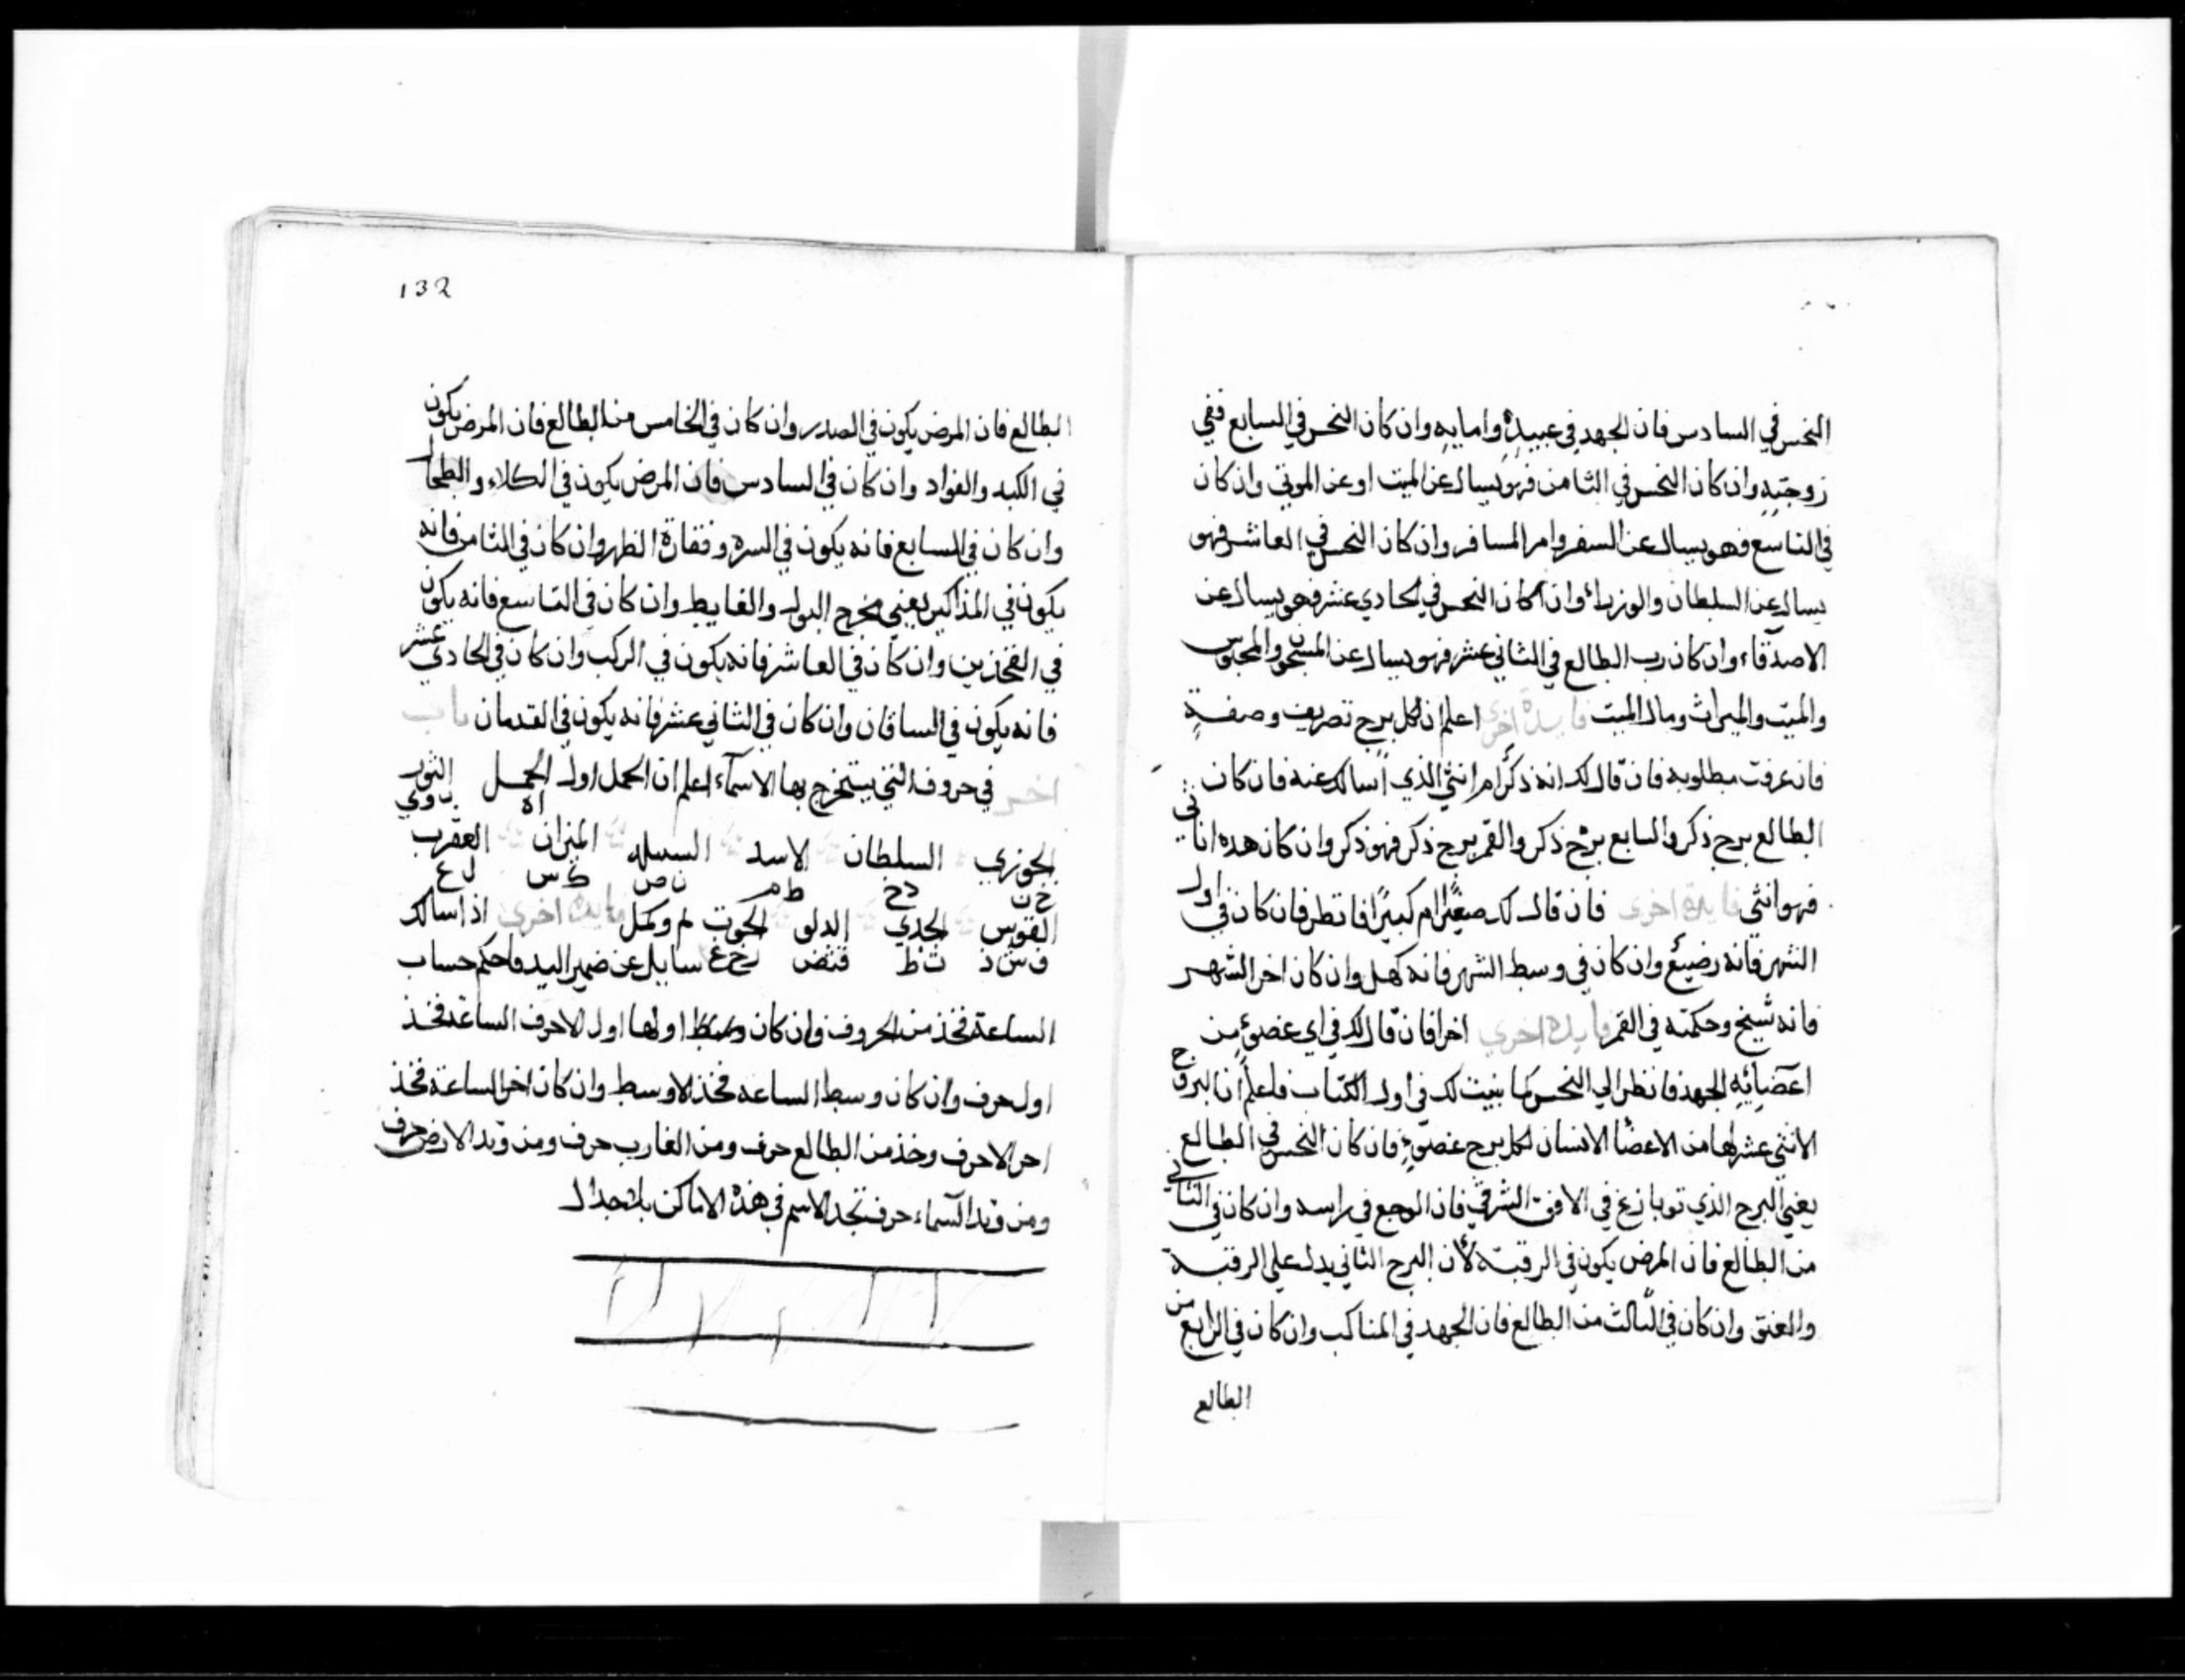 النحس في السادس فان الجهد في عبيده وامايه وان كان النحس في السابع ففي
زوجته وان كان النحس في الثامن فهو يسال عن الميت او عن الموتي وان كان
في التاسع فهو يسال عن السفر وامر المسافر وان كان النحس في العاشر فهو
يسال عن السلطان والوزراء وان كان النحس في الحادي عشر فهو يسال عن
الاصدقاء وان كان رب الطالع في الثاني عشر فهو يسال عن المسجون والمحبوس
والميت والميراث ومال الميت فايدة اخري اعلم ان لكل برج تصريف وصفة
فان عرفت مطلوبه فان قال لك انه ذكرا ام انثي الذي اسالك عنه فان كان
الطالع برج ذكر والسابع برج ذكر والقمر برج ذكر فهو ذكر وان كان هده اناثي
فهو انثي فايدة اخري فان قال لك صغيرا ام كبيرا فانظر فان كان في اول
الشهر فانه رضيع وان كان في وسط الشهر فانه كهل وان كان اخر الشهر
فانه شيخ وحكمته في القمر فايدة اخري اخر فان قال لك في اي عضو من
اعضايه الجهد فانظر الي النحس كما بنيت لك في اول الكتاب فاعلم ان البروج
الاثني عشر لها من الاعضا الانسان لكل برج عضو فان كان النحس في الطالع
يعني البرج الذي توبازغ في الافق الشرقي فان الوجع في راسه وان كان في الثاني
من الطالع فان المرض يكون في الرقبة لأن البرج الثاني يدل علي الرقبة
والعنق وان كان في الثالث من الطالع فان الجهد في المناكب وان كان في الرابع من
الطالع
132
الطالع فان المرض يكون في الصدر وان كان في الخامس من الطالع فان المرض يكون
في الكبد والفواد وان كان في السادس فان المرض يكون في الكلاء والطحا
وان كان في السابع فانه يكون في السرة وفقارة الظهر وان كان في الثامن فانه
يكون في المذاكير يعني مخرج البول والغايط وان كان في التاسع فانه يكون
في الفخذين وان كان في العاشر فانه يكون في الركب وان كان في الحادي عشر
فانه يكون في الساقان وان كان في الثاني عشر فانه يكون في القدمان باب
اخر في حروف التي يستخرج بها الاسماء اعلم ان الحمل اول الحمل الثور
اه ب وي
الجوزي السلطان الاسد السنبله الميزان العقرب
ط م ن ص ك س ل ع
القوس الجدي الدلو الحوت لم وكمل فايدة اخري اذا سالك
ف ش ذ ث ظ سايل عن ضمير اليد فاحكم حساب
الساعة فخذ من الحروف وان كان وسط اولها اول الاحرف الساعة فخذ
اول حرف وان كان وسط الساعه فخذ الاوسط وان كان اخر الساعة فخذ
اخر الاحرف وخذ من الطالع حرف ومن الغارب حرف ومن وتد الارض حرف
ومن وتد السماء حرف تجد الاسم في هذه الاماكن بلا جدال